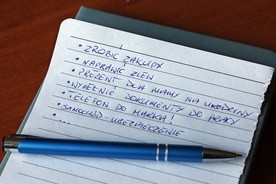 • ZROBIĆ ZAKUPY
• NAPRAWIĆ ZLEW
• PREZENT DLA MAMY NA URODZINY
• WYPEŁNIĆ DOKUMENTY DO PRACY
• TELEFON DO MARKA!
• SAMOCHÓD - UBEZPIECZENIE